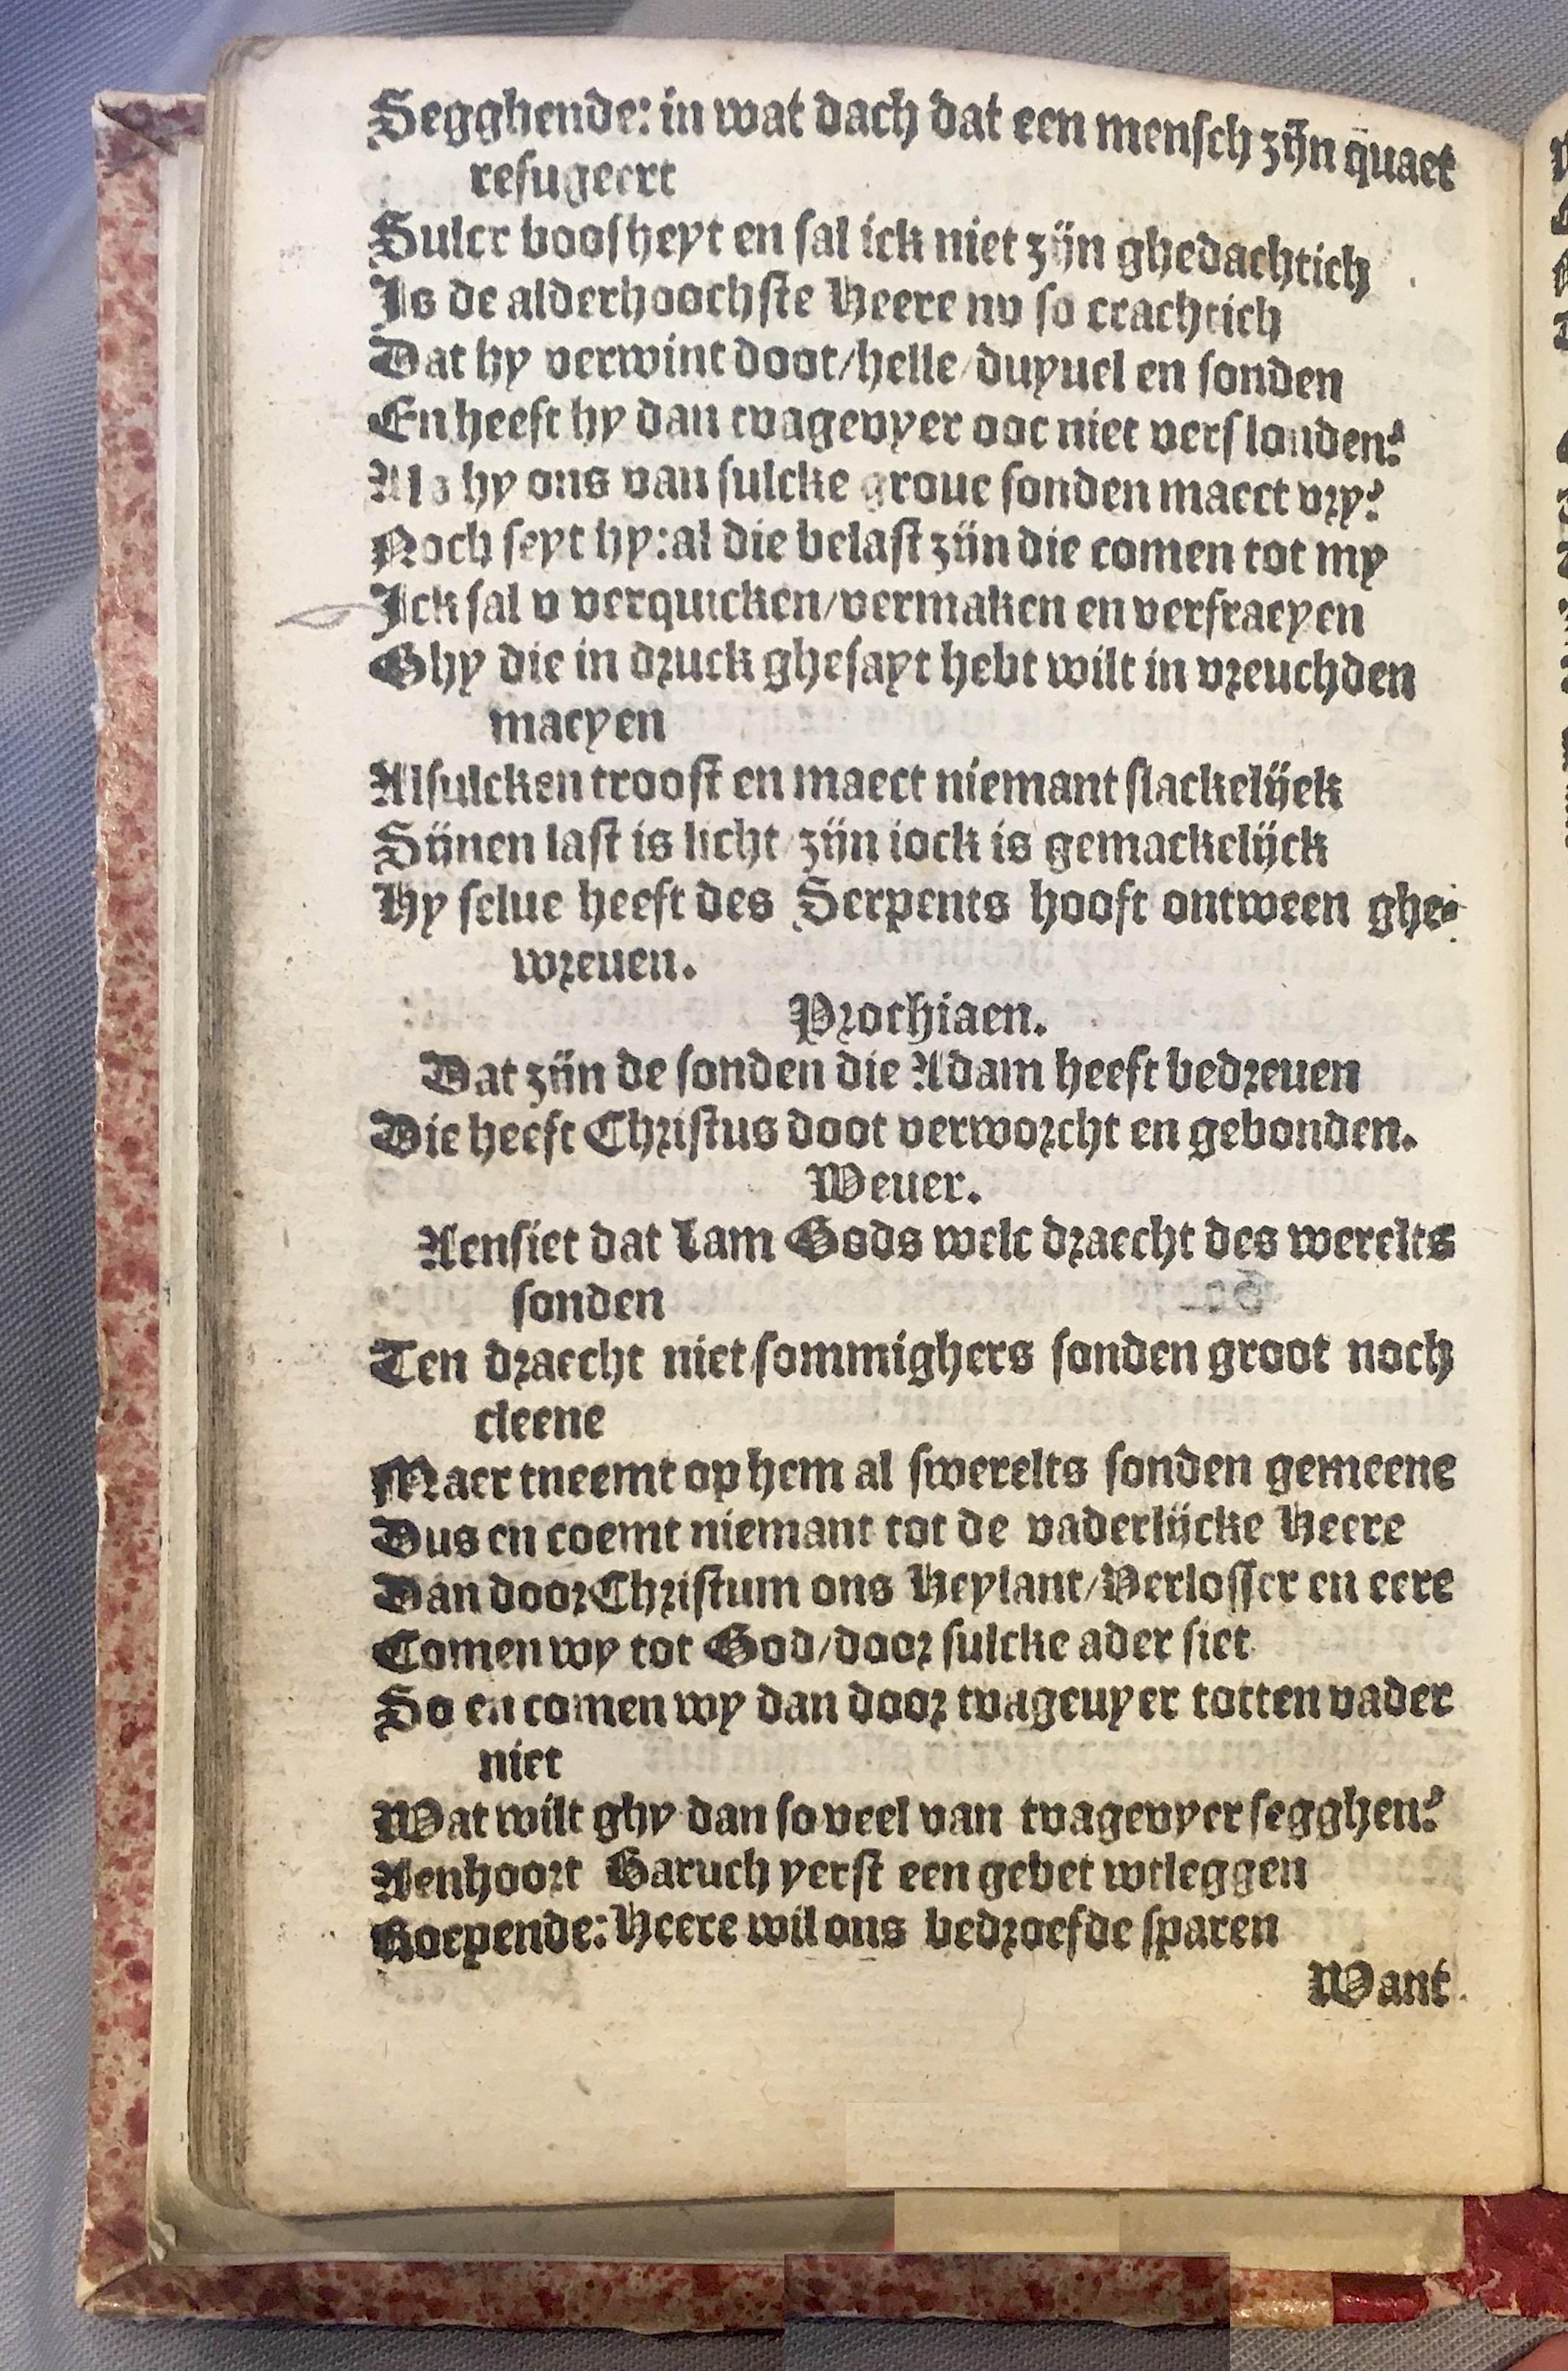 Segghende: in wat dach dat een mensch zijn quaet
refugeert
Sulcr boosheyt en sal ick niet zijn ghedachtich
Is de alderhoochste Heere nv so crachtich
Dat hy verwint doot/helle/duyuel en sonden
En heeft hy dan tvagevyer ooc niet verslonden?
Als hy ons van sulcke groue sonden maect vry?
Noch seyt hy: al die belast zijn die comen tot my
Ick sal v verquicken/vermaken en verfraeyen
Ghy die in druck ghesayt hebt wilt in vreuchden
maeyen
Alsulcken troost en maect niemant slackelijck
Sijnen last is licht/zijn iock is gemackelijck
Hy selue heeft des Serpents hooft ontween ghe-
wreuen.
Prochiaen.
Dat zijn de sonden die Adam heeft bedreuen
Die heeft Christus doot verworcht en gebonden.
Weuer.
Aensiet dat Lam Gods welc draecht des werelts
sonden
Ten draecht niet sommighers sonden groot noch
cleene
Maer tneemt op hem al swerelts sonden gemeene
Dus en coemt niemant tot de vaderlijcke Heere
Dan door Christum ons Heylant/Verlosser en eere
Comen wy tot God/door sulcke ader siet
So en comen wy dan door tvageuyer totten vader
niet
Wat wilt ghy dan so veel van tvagevyer segghen?
Aenhoort Baruch yerst een gebet wtleggen
Roepende: Heere wil ons bedroefde sparen
Want